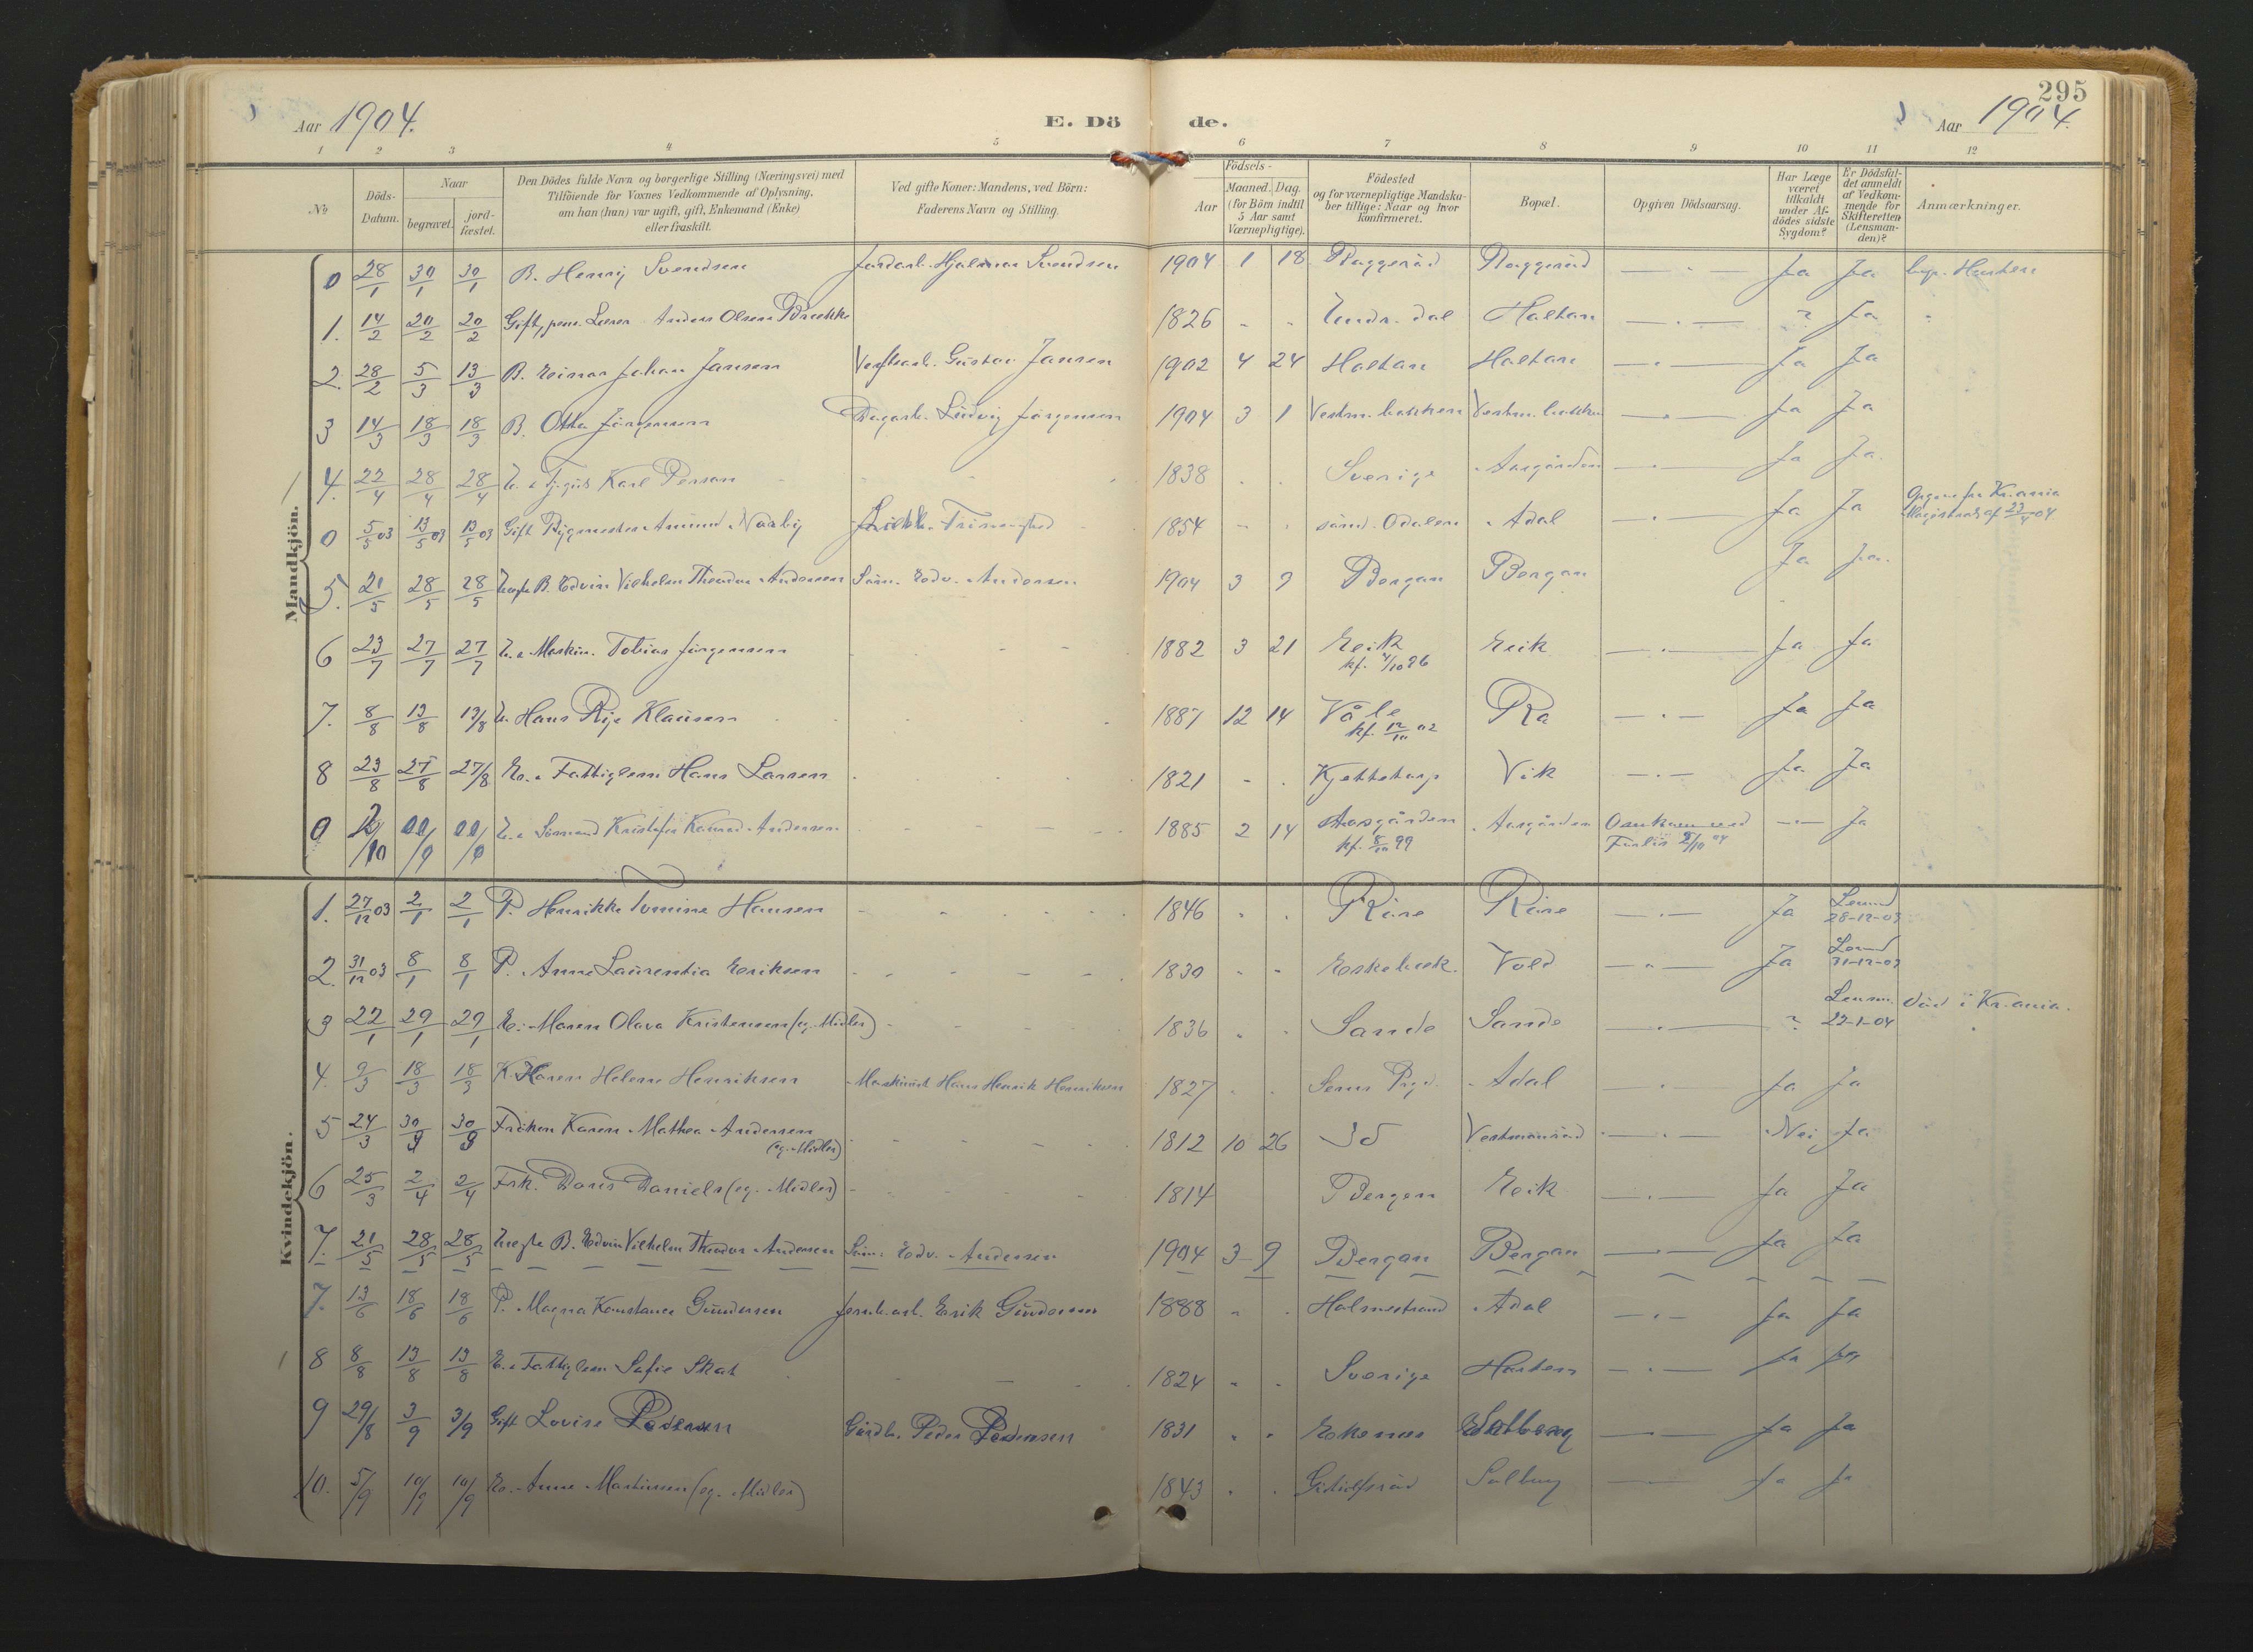 295
Aar 1904.
E. Dö de.
Aar 1904.
1 2 3 4 5 6 7 8 9 10 11 12
No
Döds-Datum.
Naar
begravet.
jord-fæstet.
Den Dödes fulde Navn og borgerlige Stilling (Næringsvei) med
Tilföiende for Voxnes Vedkommende af Oplysning,
om han (hun) var ugift, gift, Enkemand (Enke)
eller fraskilt.
Ved gifte Koner: Mandens, ved Börn:
Faderens Navn og Stilling.
Födsels-
Aar
Maaned. Dag.
(for Börn indtil
5 Aar samt
Værnepligtige).
Födested
og for værnepligtige Mandska-
ber tillige: Naar og hvor
konfirmeret.
Bopæl.
Opgiven Dödsaarsag.
Har Læge
været
tilkaldt
under Af-
dödes sidste
Sygdom?
Er Dödsfal-
det anmeldt
af Vedkom-
mende for
Skifteretten
(Lensman-
den)?
Anmærkninger.
Mandkjön.
0 28/1 30/1 30/1 B. Henry Svendsen Jordarb. Hjalmar Svendsen 1904 1 18 Raggeröd Raggeröd — " — Ja Ja
1. 14/2 20/2 20/2 Gift, pens. Lærer Anders Olsen 1826 " " Haltan — " — ? Ja
2. 28/2 5/3 13/3 B. Einar Johan Jansen Gustav Jansen 1902 4 24 Haltan Haltan — " — Ja Ja
3 14/3 18/3 18/3 B. Otto Jörgensen Dagarb. Ludvig Jörgensen 1904 3 1 Vestm. bakken Vestm. bakken — " — Ja Ja
4. 22/4 28/4 28/4 Karl Person 1838 " " Sverige Aasgården — " — Ja Ja.
0 5/5 03 13/5 03 13/5 03 Gift Bygmester Amund Nordby 1854 " " sönd. Odalen Adal — " — Ja Ja Kr.ania
af 23/4 04.
5. 21/5 28/5 28/5 Uægte B. Edvin Vilhelm Theodor Andersen Söm. Edv. Andersen 1904 3 9 Bergan Bergan Ja Ja.
6 23/7 27/7 27/7 U. Maskin. Tobias Jörgensen 1882 3 21 Eeik Eeik — " — Ja Ja
kf. 4/10 96
7. 8/8 13/8 13/8 U. Hans Klausen 1887 12 14 Våle Ra — " — Ja Ja
kf. 12/10 02
8 23/8 27/8 27/8 E. Fattiglem Hans Larsen 1821 " " Vik — " — Ja Ja
0 U. Sömand Kristofer Konrad Andersen 1885 2 14 Aasgården Aasgården — " — Ja
kf. 8/10 99
Kvindekjön.
1. 27/12 03 2/1 2/1 P. Henrikke Tomine Hansen 1846 " " Råne Råne — " — Ja Lensmd
28-12-03
2. 31/12 03 8/1 8/1 P. Anne Laurentia Eriksen 1830 " " Vold — " — Ja Lensmd
31-12-03
3 22/1 29/1 29/1 E. Maren Olava Kristensen (eg. Midler) 1836 " " Sande Sande — " — ? Lensm. död i Kr.ania.
22-1-04
4. 9/3 18/3 18/3 K. Karen Helene Henriksen Maskinist Hans Henrik Henriksen 1827 " " Adal — " — Ja Ja
5 24/3 30/3 30/3 Fröken Karen Mathea Andersen 1812 10 26 Id Vestmansröd — " — Nei Ja
(eg. Midler)
6 25/3 2/4 2/4 Frk. Doris Daniels (eg. Midler) 1814 Bergen Eeik — " — Ja Ja
7. 21/5 28/5 28/5 Uægte B. Edvin Vilhelm Theodor Andersen Söm. Edv. Andersen 1904 3 9 Bergan Bergan — " — Ja Ja
7. 13/6 18/6 18/6 P. Magna Konstance Gundersen Jernb.arb. Erik Gundersen 1888 " " Holmestrand Adal — " — Ja Ja
8 8/8 13/8 13/8 E. Fattiglem Sofie Skat 1824 " " Sverige — " — Ja Ja
9 29/8 3/9 3/9 Gift Lovise Pedersen Gårdb. Peder Pedersen 1831 " " Solberg — " — Ja Ja
10. 5/9 10/9 10/9 E. Anne Martinsen (eg. Midler) 1843 " " Solberg — Ja Ja